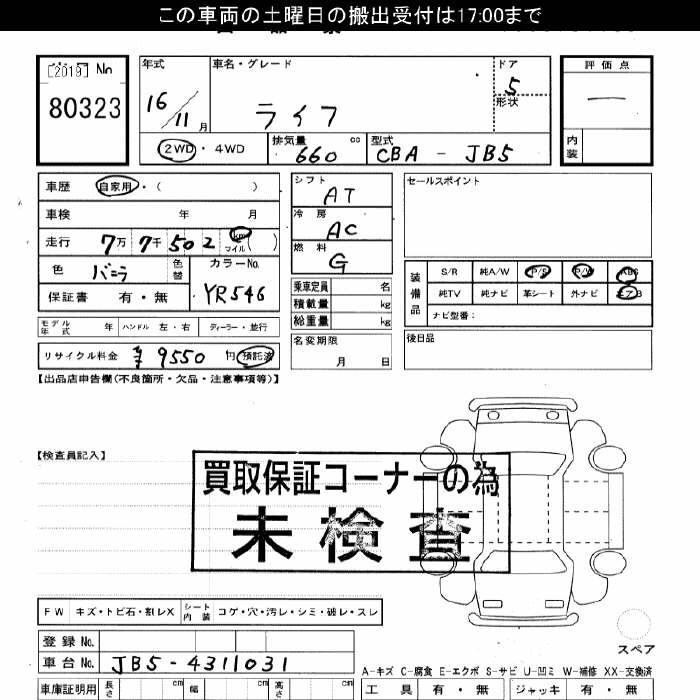 この車両の土曜日の搬出受付は17:00まで
[2019] No
80323
年式
16/11月
車名・グレード
ライフ
ドア
5
形状
評価点
一
内装
2WD・4WD
排気量
660 cc
型式
CBA - JB5
車歴 自家用・( )
車検 年 月
走行 7万 7千 502 km マイル ( )
色 バニラ 色替
カラーNo.
YR546
保証書 有・無
モデル年式 年 ハンドル 左・右 ディーラー・並行
リサイクル料金 ¥9550 円 預託済
シフト
AT
冷房
AC
燃料
G
乗車定員 名
積載量 kg
総重量 kg
名変期限
月 日
セールスポイント
装備品
S/R 純A/W P/S P/W ABS
純TV 純ナビ 革シート 外ナビ エアB
ナビ型番:
後日品
【出品店申告欄(不良箇所・欠品・注意事項等)】
【検査員記入】
買取保証コーナーの為
未検査
FW キズ・トビ石・割レX シート内装 コゲ・穴・汚レ・シミ・破レ・スレ
登録No.
車台No. JB5-4311031
スペア
A-キズ C-腐食 E-エクボ S-サビ U-凹ミ W-補修 XX-交換済
車庫証明用 長さ cm 幅 cm 高さ cm
工具 有・無 ジャッキ 有・無